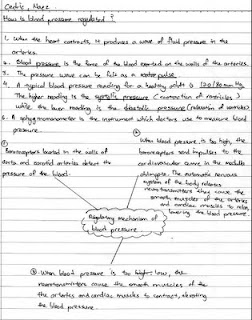 Cedric, Naez
How is blood pressure regulated?
1. When the heart contracts, it produces a wave of fluid pressure in the
arteries.
2. Blood pressure is the force of the blood exerted on the walls of the arteries.
3. The pressure wave can be felt as a
4. A typical blood pressure reading for a healthy adult is 120/80 mmHg.
The higher reading is the systolic pressure (contraction of ventricles)
while the lower reading is the diastolic pressure (relaxation of ventricles)
is the instrument which doctors use to measure blood
pressure.
Baroreceptors located in the walls of
aorta and carotid arteries detect the
pressure of the blood.
When blood pressure is too high, the
baroreceptors send impulses to the
cardiovascular centre in the medulla
oblongata. The
system of the body releases
neurotransmitters they cause the
smooth muscles of the arteries
and cardiac muscles to relax,
lowering the blood pressure.
Regulating mechanism of
blood pressure
When blood pressure is too low, the
neurotransmitters cause the smooth muscles of the
arteries and cardiac muscles to contract, elevating
the blood pressure.